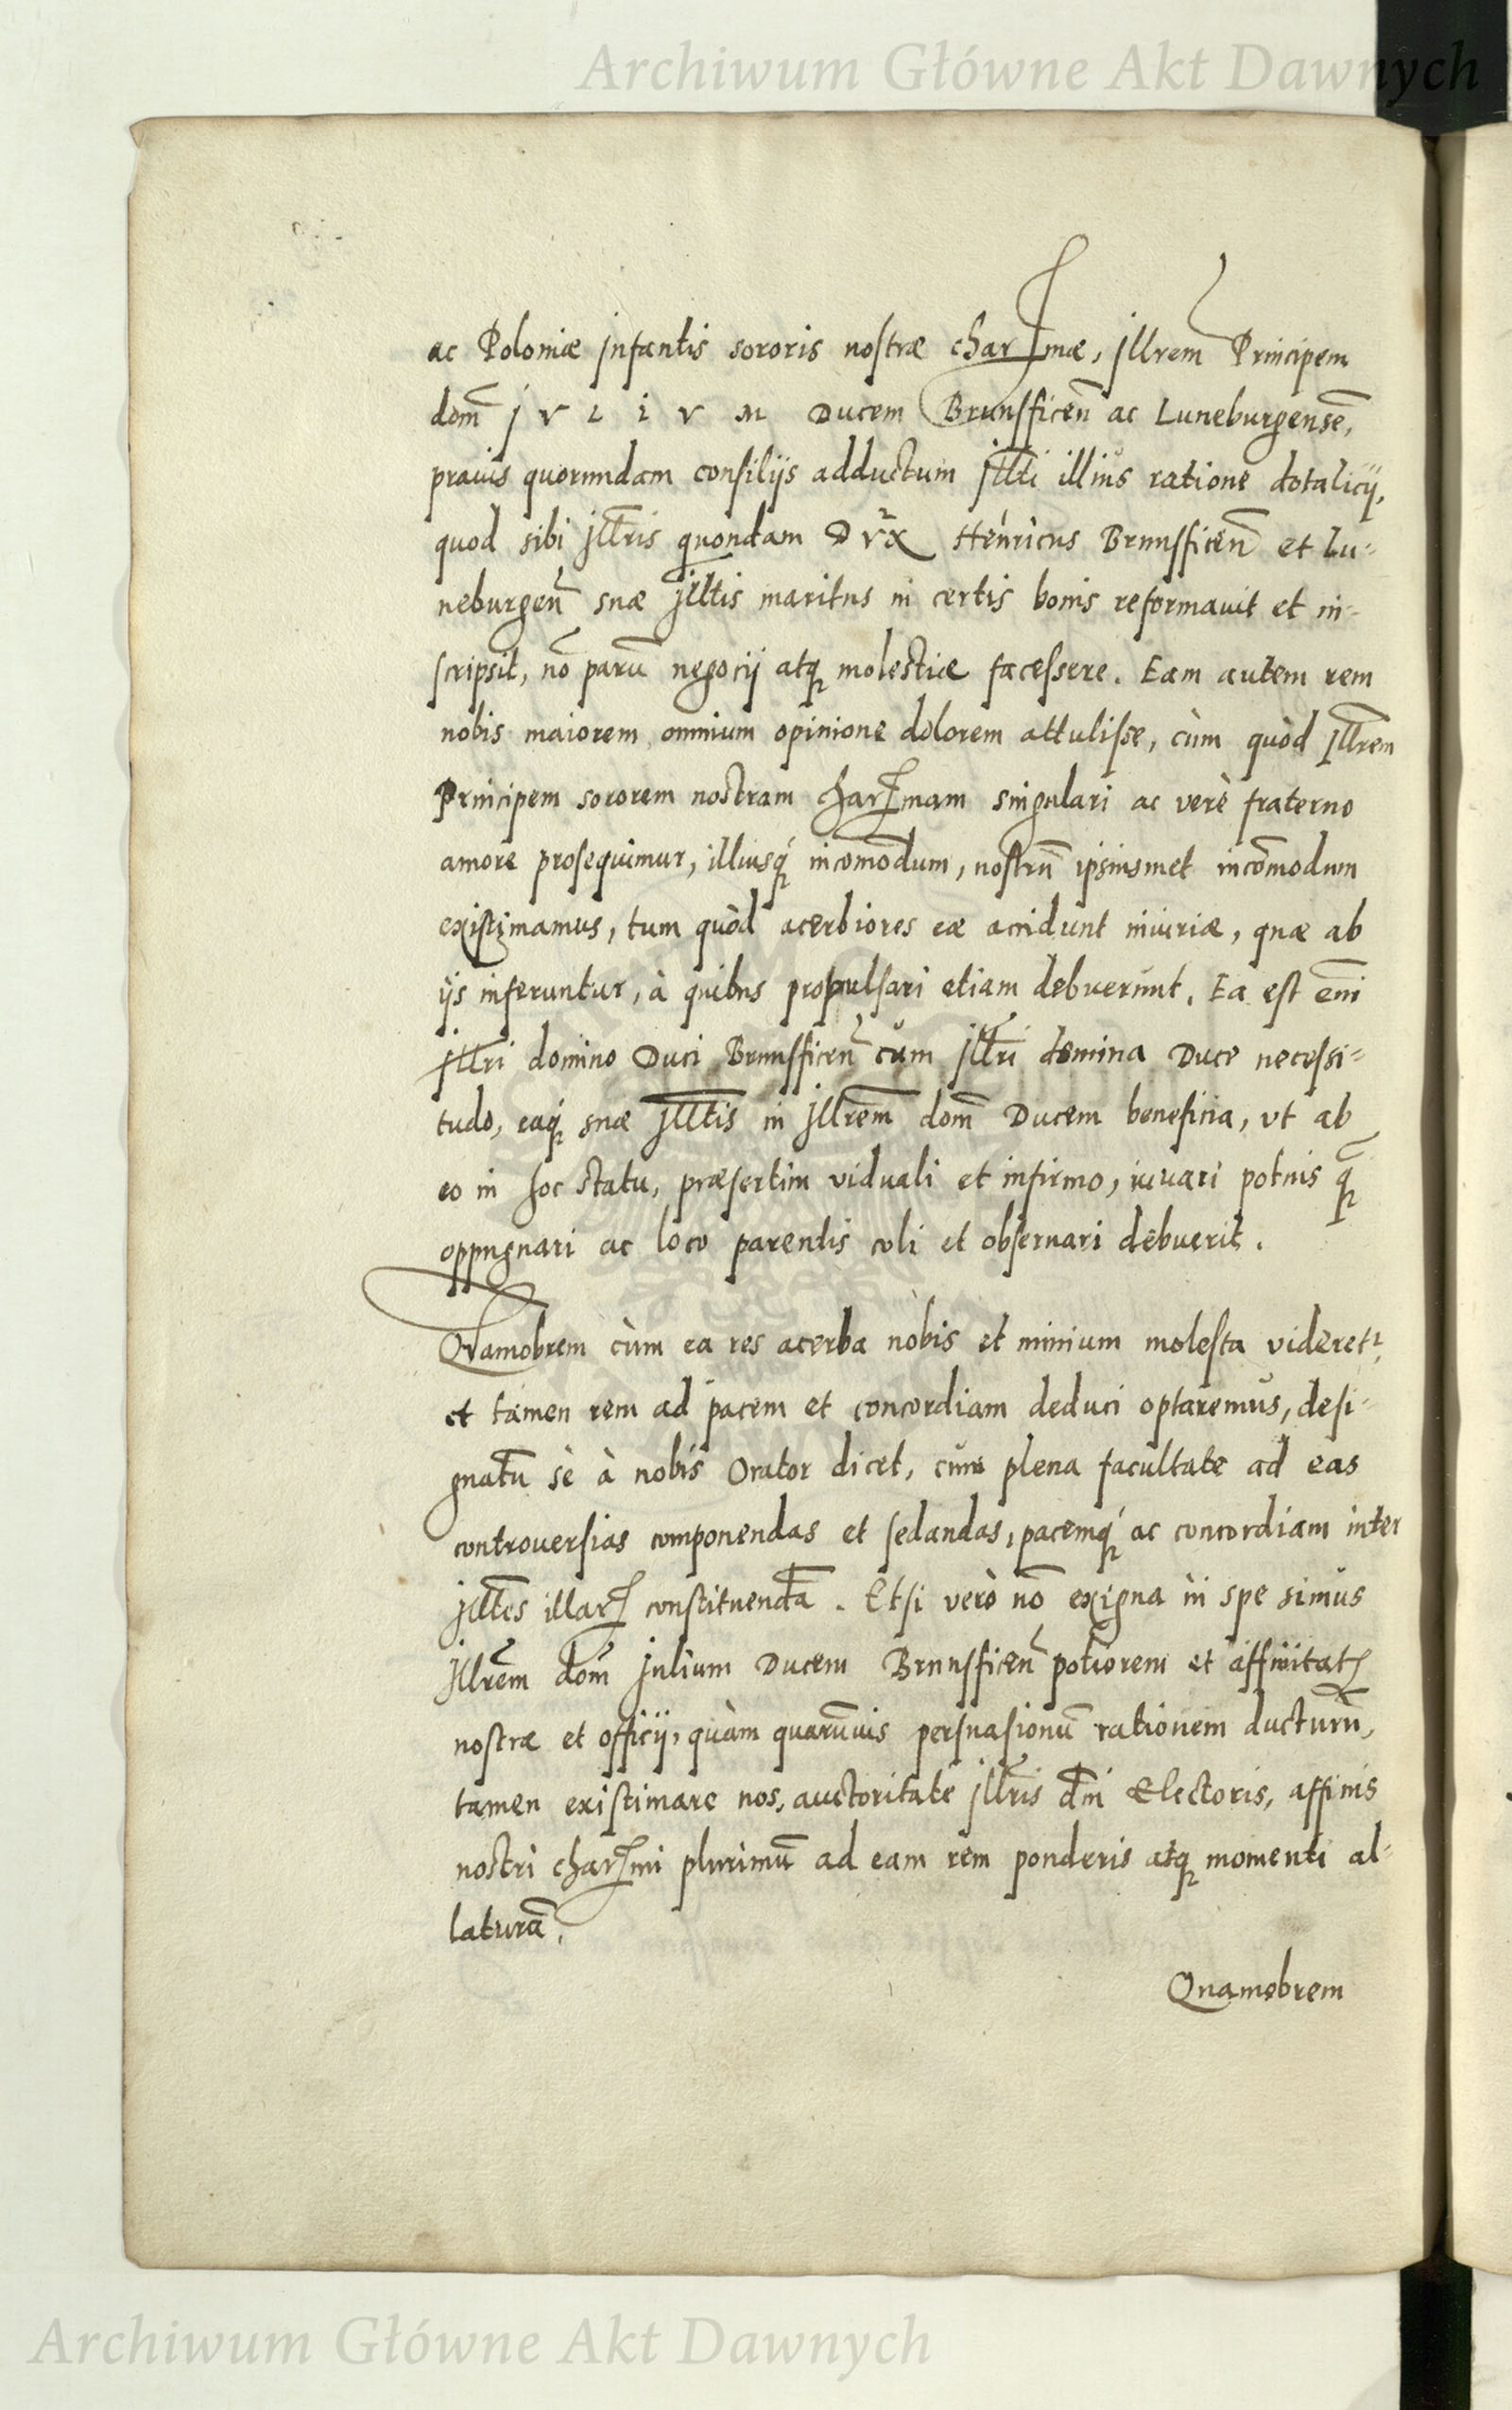 Archiwum Główne Akt Dawnych
ac Poloniæ jnfantis sororis nostræ charmæ, jllrem Principem
dom̃ j v l i v m Ducem Brunsficeñ ac Luneburgensẽ,
prauis quorundam consilijs adductum jllti illius ratione dotalicij,
quod sibi jllris quondam Dvx Henricus Brunsficeñ et Lu-
neburgeñ suæ jlltis maritus in certis bonis reformauit et in-
scripsit, nõ parũ negocij atq molestiæ facessere. Eam autem rem
nobis maiorem omnium opinione dolorem attulisse, cùm quòd jllrem
Principem sororem nostram charmam singulari ac verè fraterno
amore prosequimur, illiusq́ incomõdum, nostrũ ipsiusmet incõmodum
existimamus, tum quòd acerbiores eæ accidunt iniuriæ, quæ ab
ijs inferuntur, à quibus propulsari etiam debuerunt. Ea est em̃
jllri domino Duci Brunsficeñ cum jllri domina Duce necessi-
tudo, eaq́ suæ jlltis in jllrem̃ dom̃ Ducem beneficia, vt ab
eo in hoc statu, præsertim viduali et infirmo, iuuari potius q̃
oppugnari ac loco parentis coli et obseruari debuerit.
Qvamobrem cùm ea res acerba nobis et nimium molesta videret,
et tamen rem ad pacem et concordiam deduci optaremus, desi-
gnatũ sè à nobis Orator dicet, cum plena facultate ad eas
controuersias componendas et sedandas, pacemq́ ac concordiam inter
jlltes illar constituendã. Etsi verò nõ exigua in spe simus
jllrem̃ dom̃ julium Ducem Brunsficeñ potiorem et affinitat
nostræ et officij, quàm quarũuis persuasionũ rationem ducturũ,
tamen existimare nos, auctoritatẽ jllris dñi Electoris, affinis
nostri charmi plurimũ ad eam rem ponderis atq momenti al-
laturã.
Quamobrem
Archiwum Główne Akt Dawnych